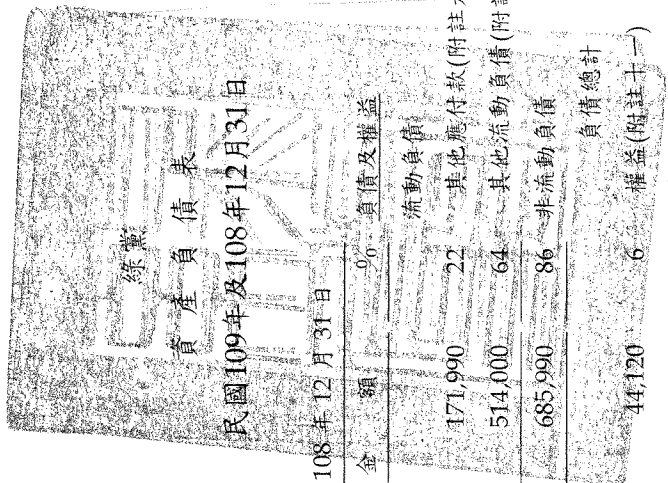 綠黨
資產負債表
民國109年及108年12月31日
108年12月31日
金額 % 負債及權益
流動負債
171,990 22 其他應付款(附註
514,000 64 其他流動負債(附註
685,990 86 非流動負債
負債總計
44,120 6 權益(附註十一)